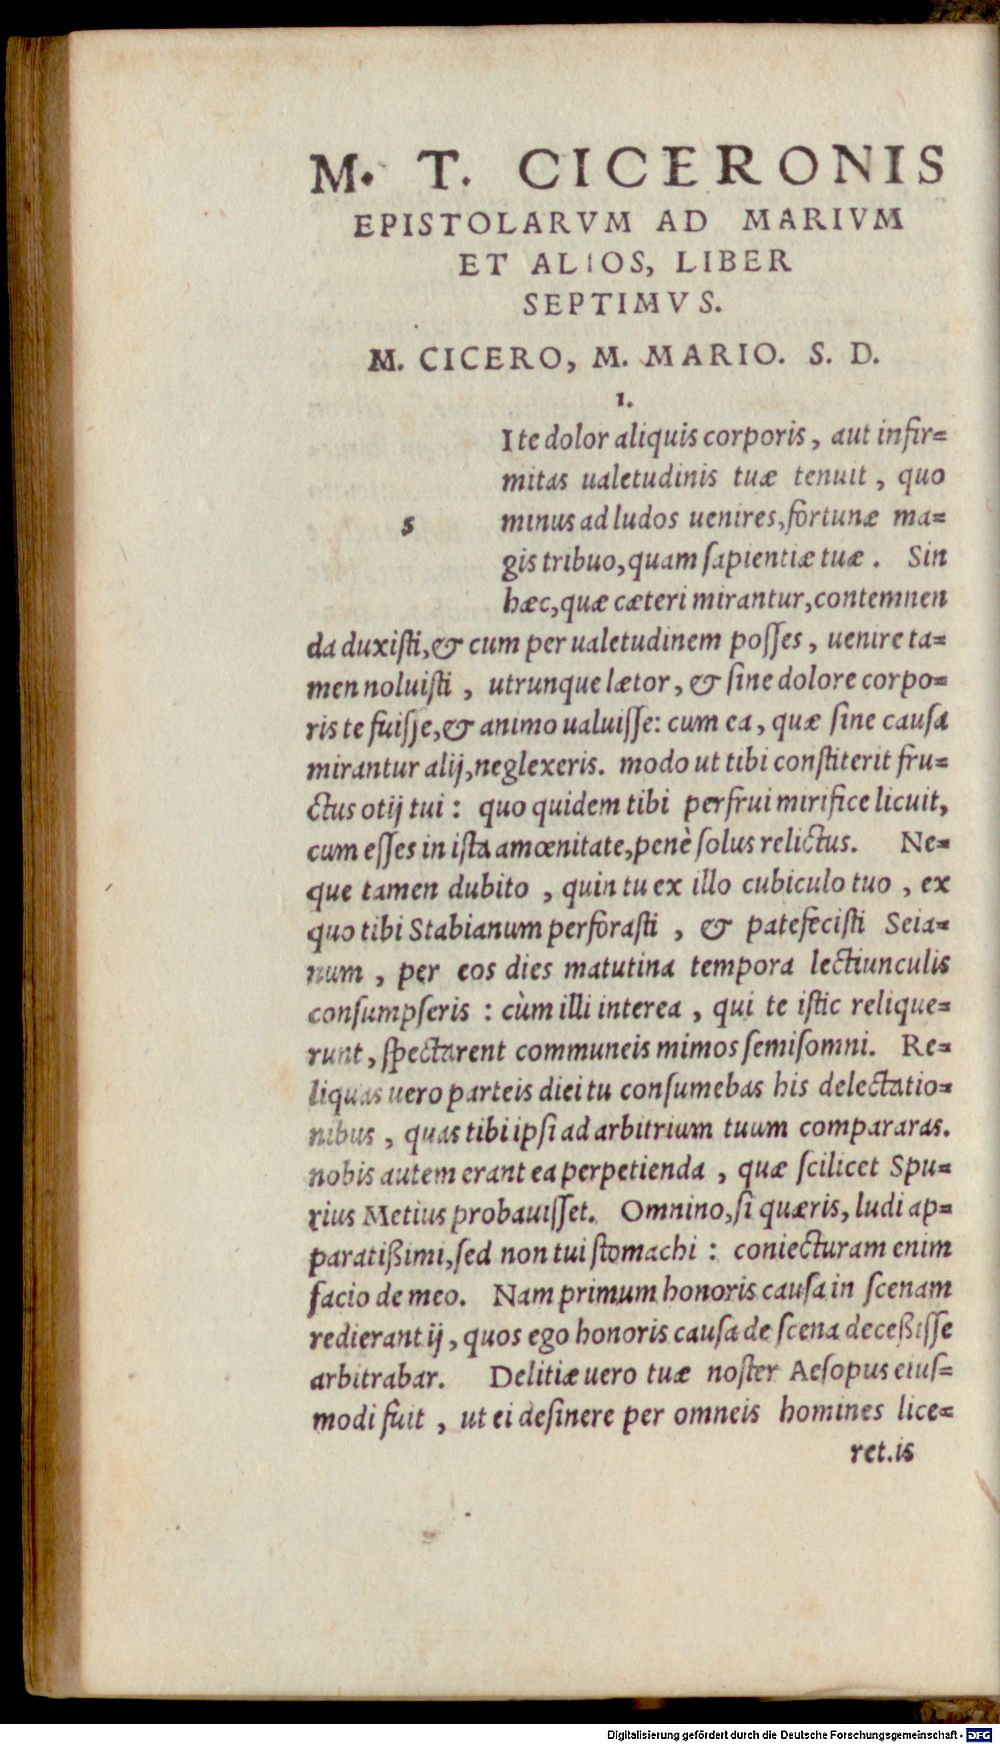 M. T. CICERONIS
EPISTOLARVM AD MARIVM
ET ALIOS, LIBER
SEPTIMVS.
M. CICERO, M. MARIO. S. D.
1.
s Ite dolor aliquis corporis, aut infir=
mitas ualetudinis tuæ tenuit, quo
minus ad ludos uenires, fortunæ ma=
gis tribuo, quam ſapientiæ tuæ. Sin
hæc, quæ cæteri mirantur, contemnen
da duxiſti, & cum per ualetudinem poſſes, uenire ta=
men noluiſti, utrunque lætor, & ſine dolore corpo=
ris te fuiſſe, & animo ualuiſſe: cum ea, quæ ſine cauſa
mirantur alij, neglexeris. modo ut tibi conſtiterit fru=
ctus otij tui: quo quidem tibi perfrui mirifice licuit,
cum eſſes in iſta amœnitate, penè ſolus relictus. Ne=
que tamen dubito, quin tu ex illo cubiculo tuo, ex
quo tibi Stabianum perforaſti, & patefeciſti Seia=
num, per eos dies matutina tempora lectiunculis
conſumpſeris: cùm illi interea, qui te iſtic relique=
runt, ſpectarent communeis mimos ſemiſomni. Re=
liquas uero parteis diei tu conſumebas his delectatio=
nibus, quas tibi ipſi ad arbitrium tuum compararas.
nobis autem erant ea perpetienda, quæ ſcilicet Spu=
rius Metius probauiſſet. Omnino, ſi quæris, ludi ap=
paratißimi, ſed non tui ſtomachi: coniecturam enim
facio de meo. Nam primum honoris cauſa in ſcenam
redierant ij, quos ego honoris cauſa de ſcena deceßiſſe
arbitrabar. Delitiæ uero tuæ noſter Aeſopus eiuſ=
modi fuit, ut ei deſinere per omneis homines lice=
ret. is
Digitalisierung gefördert durch die Deutsche Forschungsgemeinschaft - DFG